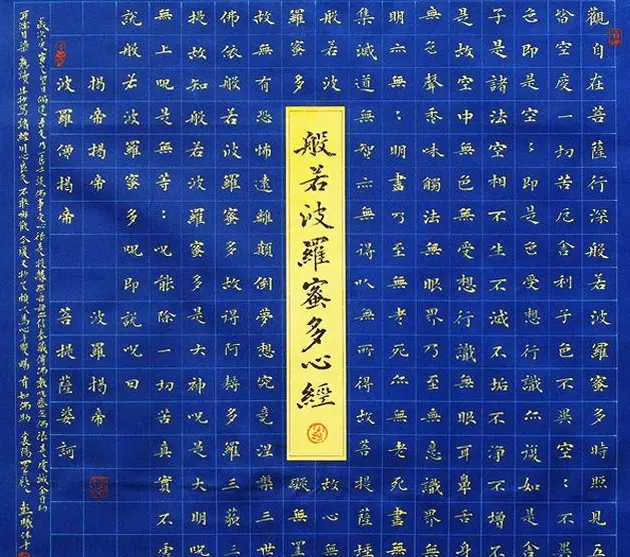 觀自在菩薩行深般若波羅蜜多時照見五
皆空度一切苦厄舍利子色不異空：不
色即是空：即是色受想行識亦復如是
子是諸法空相不生不滅不垢不淨不增不
是故空中無色無受想行識無眼耳鼻舌
無色聲香味觸法無眼界乃至無意識界
明亦無：明盡乃至無老死亦無老死盡
集滅道無智亦無得以無所得故菩提薩埵
般若波
故心
羅蜜多
礙無罣
般若波羅蜜多心經
故無有恐怖遠離顛倒夢想究竟涅槃三世
佛依般若波羅蜜多故得阿耨多羅三藐三
提故知般若波羅蜜多是大神呪是大明呪
無上呪是無等：呪能除一切苦真實不虛
說般若波羅蜜多呪即說呪曰
揭帝揭帝 波羅揭帝
波羅僧揭帝 菩提薩婆訶